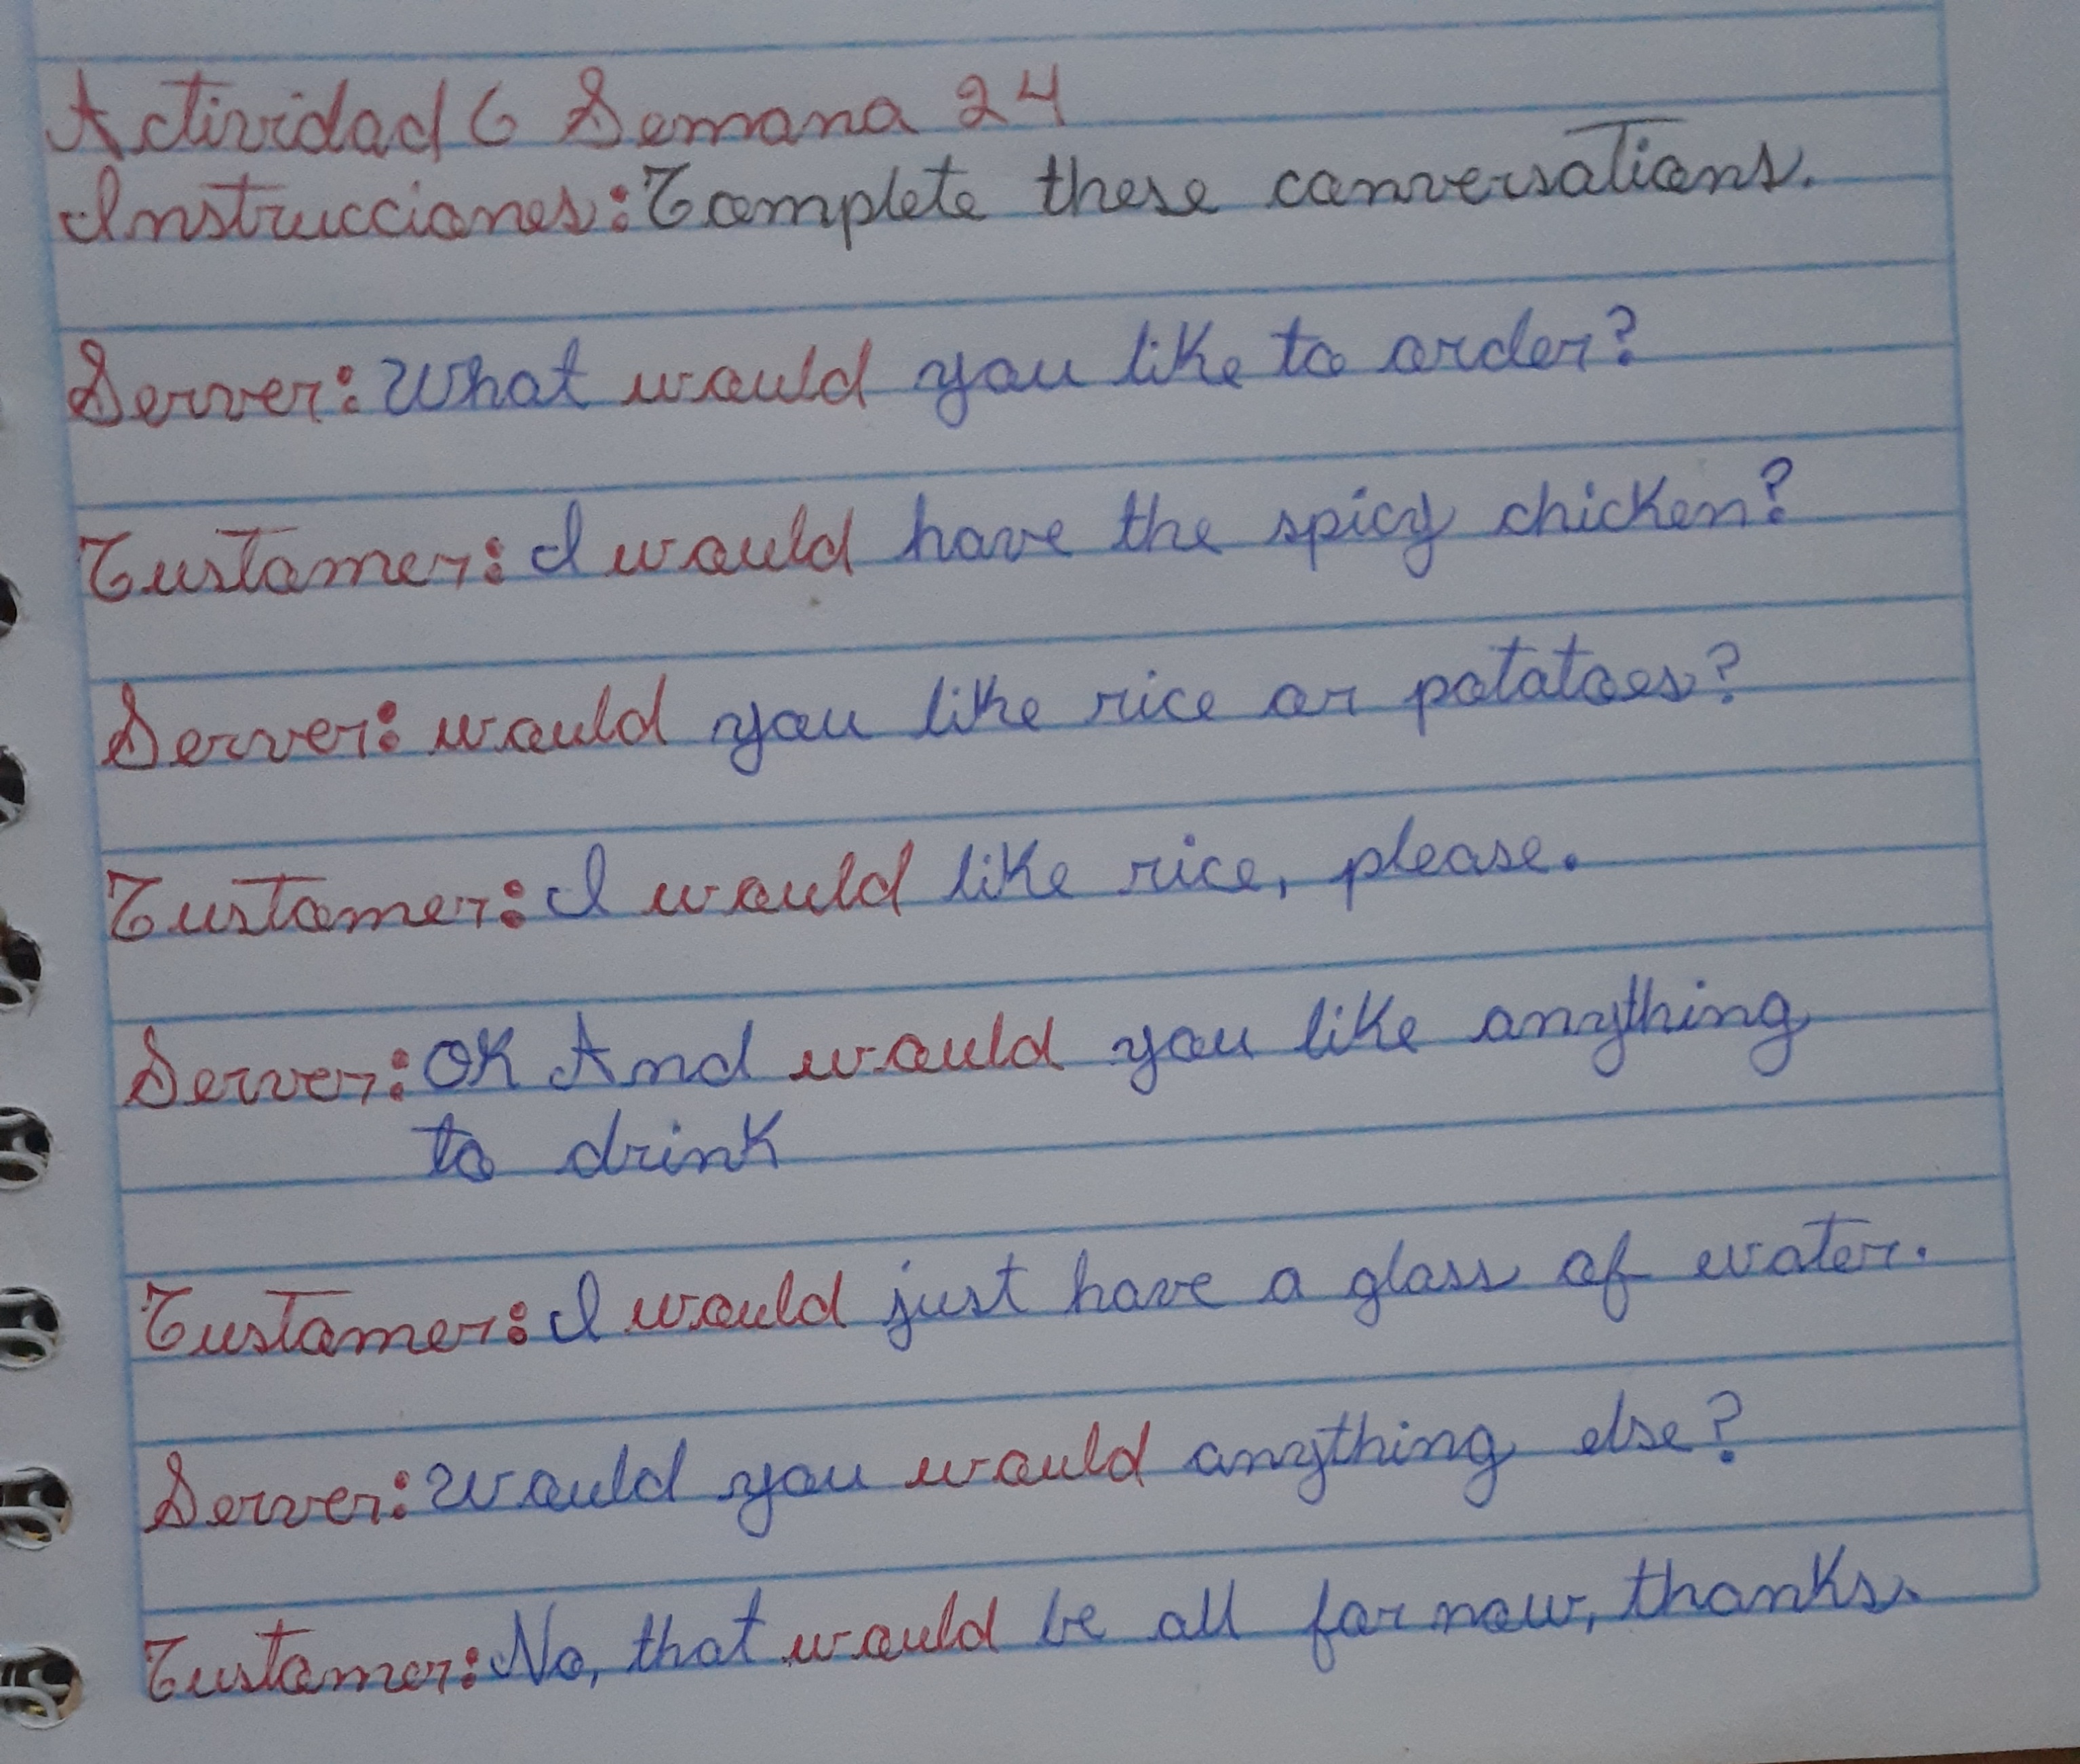 Actividad 6 Semana 24
Instrucciones: Complete these conversations.
Server: What would you like to order?
Customer: I would have the spicy chicken?
Server: would you like rice or potatoes?
Customer: I would like rice, please.
Server: OK And would you like anything
to drink
Customer: I would just have a glass of water.
Server: Would you would anything else?
Customer: No, that would be all for now, thanks.